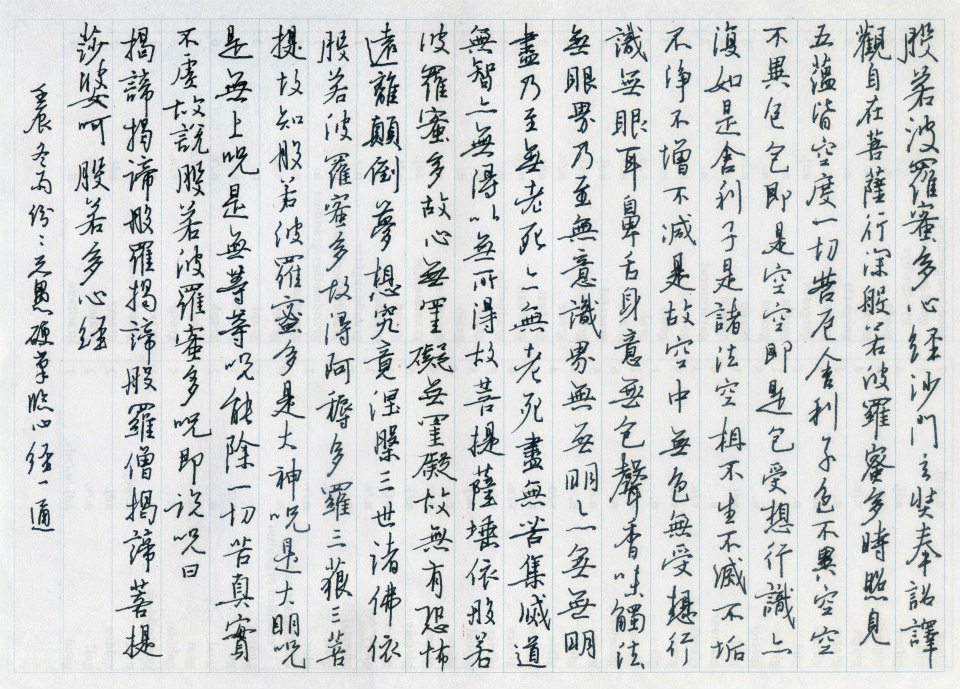 般若波羅蜜多心経沙門玄奘奉詔譯
觀自在菩薩行深般若波羅蜜多時照見
五蘊皆空度一切苦厄舍利子色不異空空
不異色色即是空空即是色受想行識亦
復如是舍利子是諸法空相不生不滅不垢
不淨不增不減是故空中無色無受想行
識無眼耳鼻舌身意無色聲香味觸法
無眼界乃至無意識界無無明亦無無明
盡乃至無老死亦無老死盡無苦集滅道
無智亦無得以無所得故菩提薩埵依般若
波羅蜜多故心無罣礙無罣礙故無有恐怖
遠離顛倒夢想究竟涅槃三世諸佛依
般若波羅蜜多故得阿耨多羅三藐三菩
提故知般若波羅蜜多是大神咒是大明咒
是無上咒是無等等咒能除一切苦真實
不虛故說般若波羅蜜多咒即說咒曰
揭諦揭諦般羅揭諦般羅僧揭諦菩提
莎婆呵般若多心経
壬辰冬為份〻之愚硬草臨心経一通